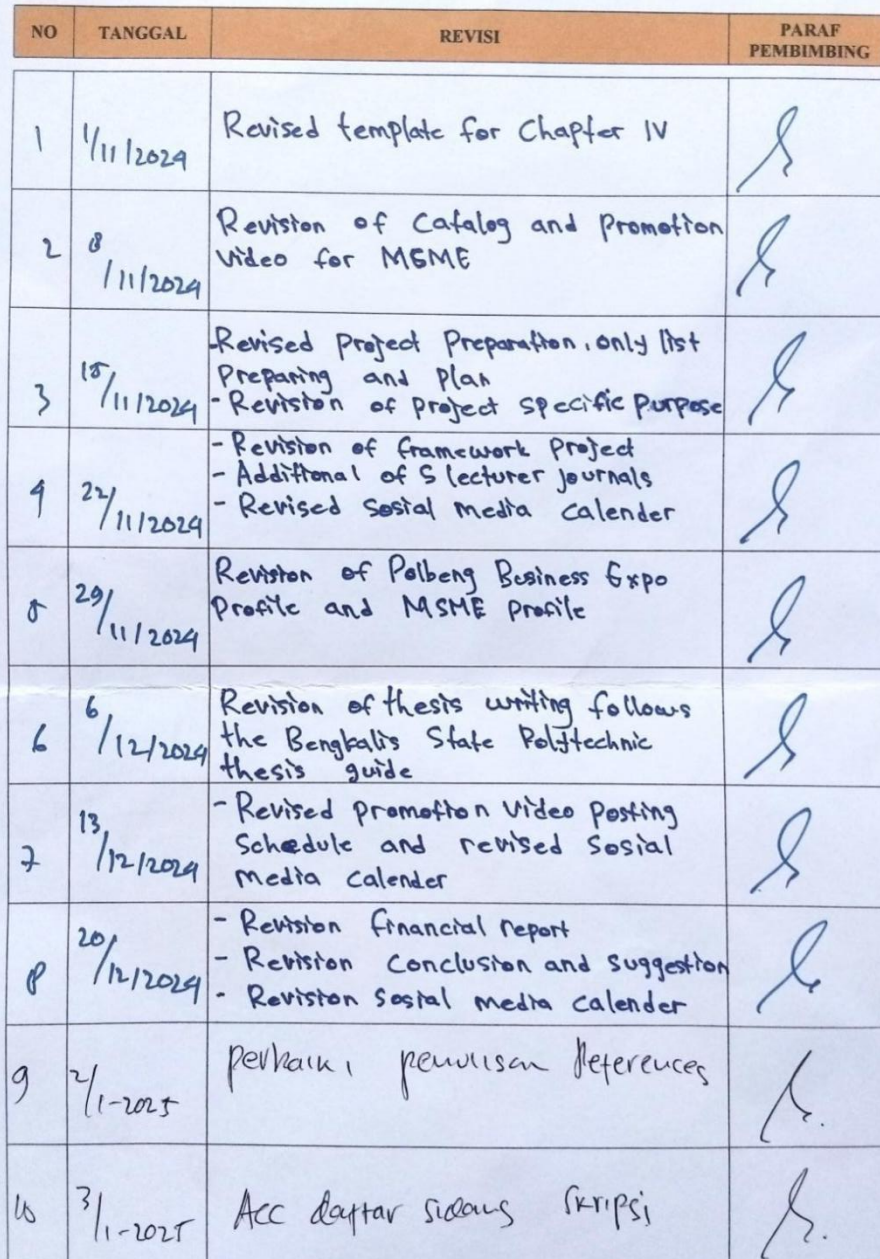 NO TANGGAL REVISI PARAF PEMBIMBING
1 1/11/2024 Revised template for Chapter IV
2 8/11/2024 Revision of Catalog and promotion
video for MSME
3 15/11/2024 -Revised project preparation, only list
preparing and plan
- Revision of project specific purpose
4 22/11/2024 - Revision of framework project
- Additional of 5 lecturer journals
- Revised sosial media calender
5 29/11/2024 Revision of Polbeng Business Expo
profile and MSME profile
6 6/12/2024 Revision of thesis writing follows
the Bengkalis State Polytechnic
thesis guide
7 13/12/2024 - Revised promotion video posting
schedule and revised sosial
media calender
8 20/12/2024 - Revision financial report
- Revision conclusion and suggestion
- Revision sosial media calender
9 2/1-2025 perbaiki penulisan References
10 3/1-2025 Acc daftar sidang skripsi